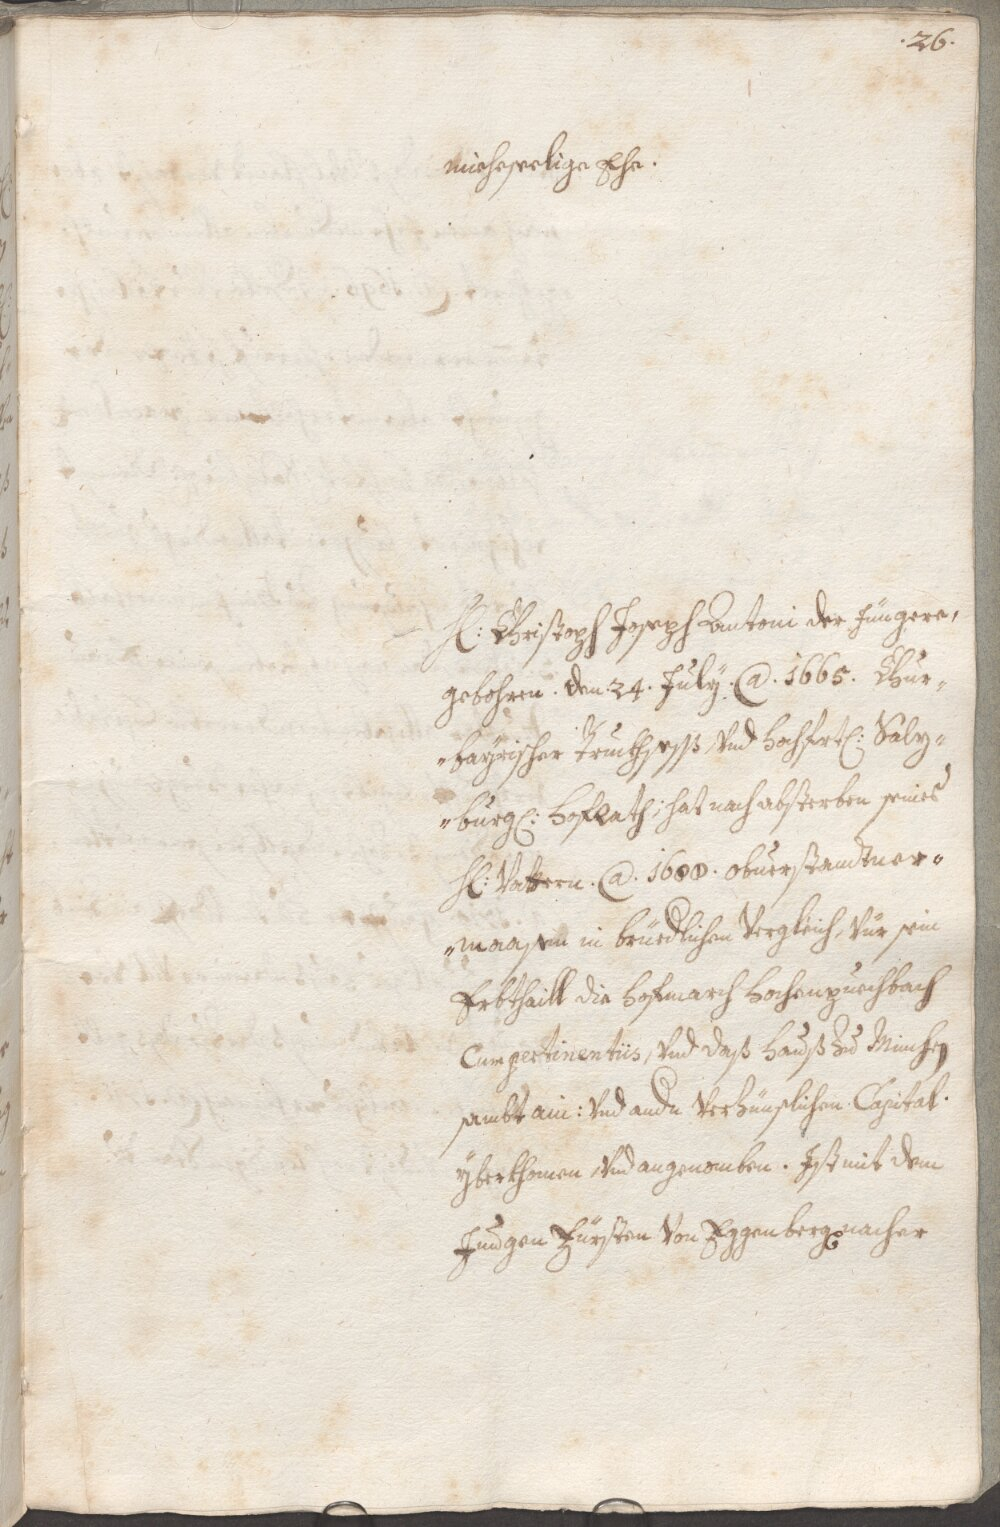 ·26·
miehseelige Ehe.
H: Christoph Joseph Antoni der Jüngere,
gebohren. den. 24. July. @. 1665. Chur=
=bayrischer Truchseß, vnd hochfrtl: Salz=
=burg: Hofrath; hat nach absterben seines
H: Vattern. @. 1680. obuerstandtner=
=maasen in brüedlichen Vergleich, vür sein
Erbthaill die Hofmarch Hochenpuechbach
Cum pertinentiis, vnd daß Hauß zu Minchen
sambt ain: vnd andn verzünslichen Capital.
yberkhomen, vnd angenomben. Ist mit dem
Jungen Fürsten von Eggenberg nacher